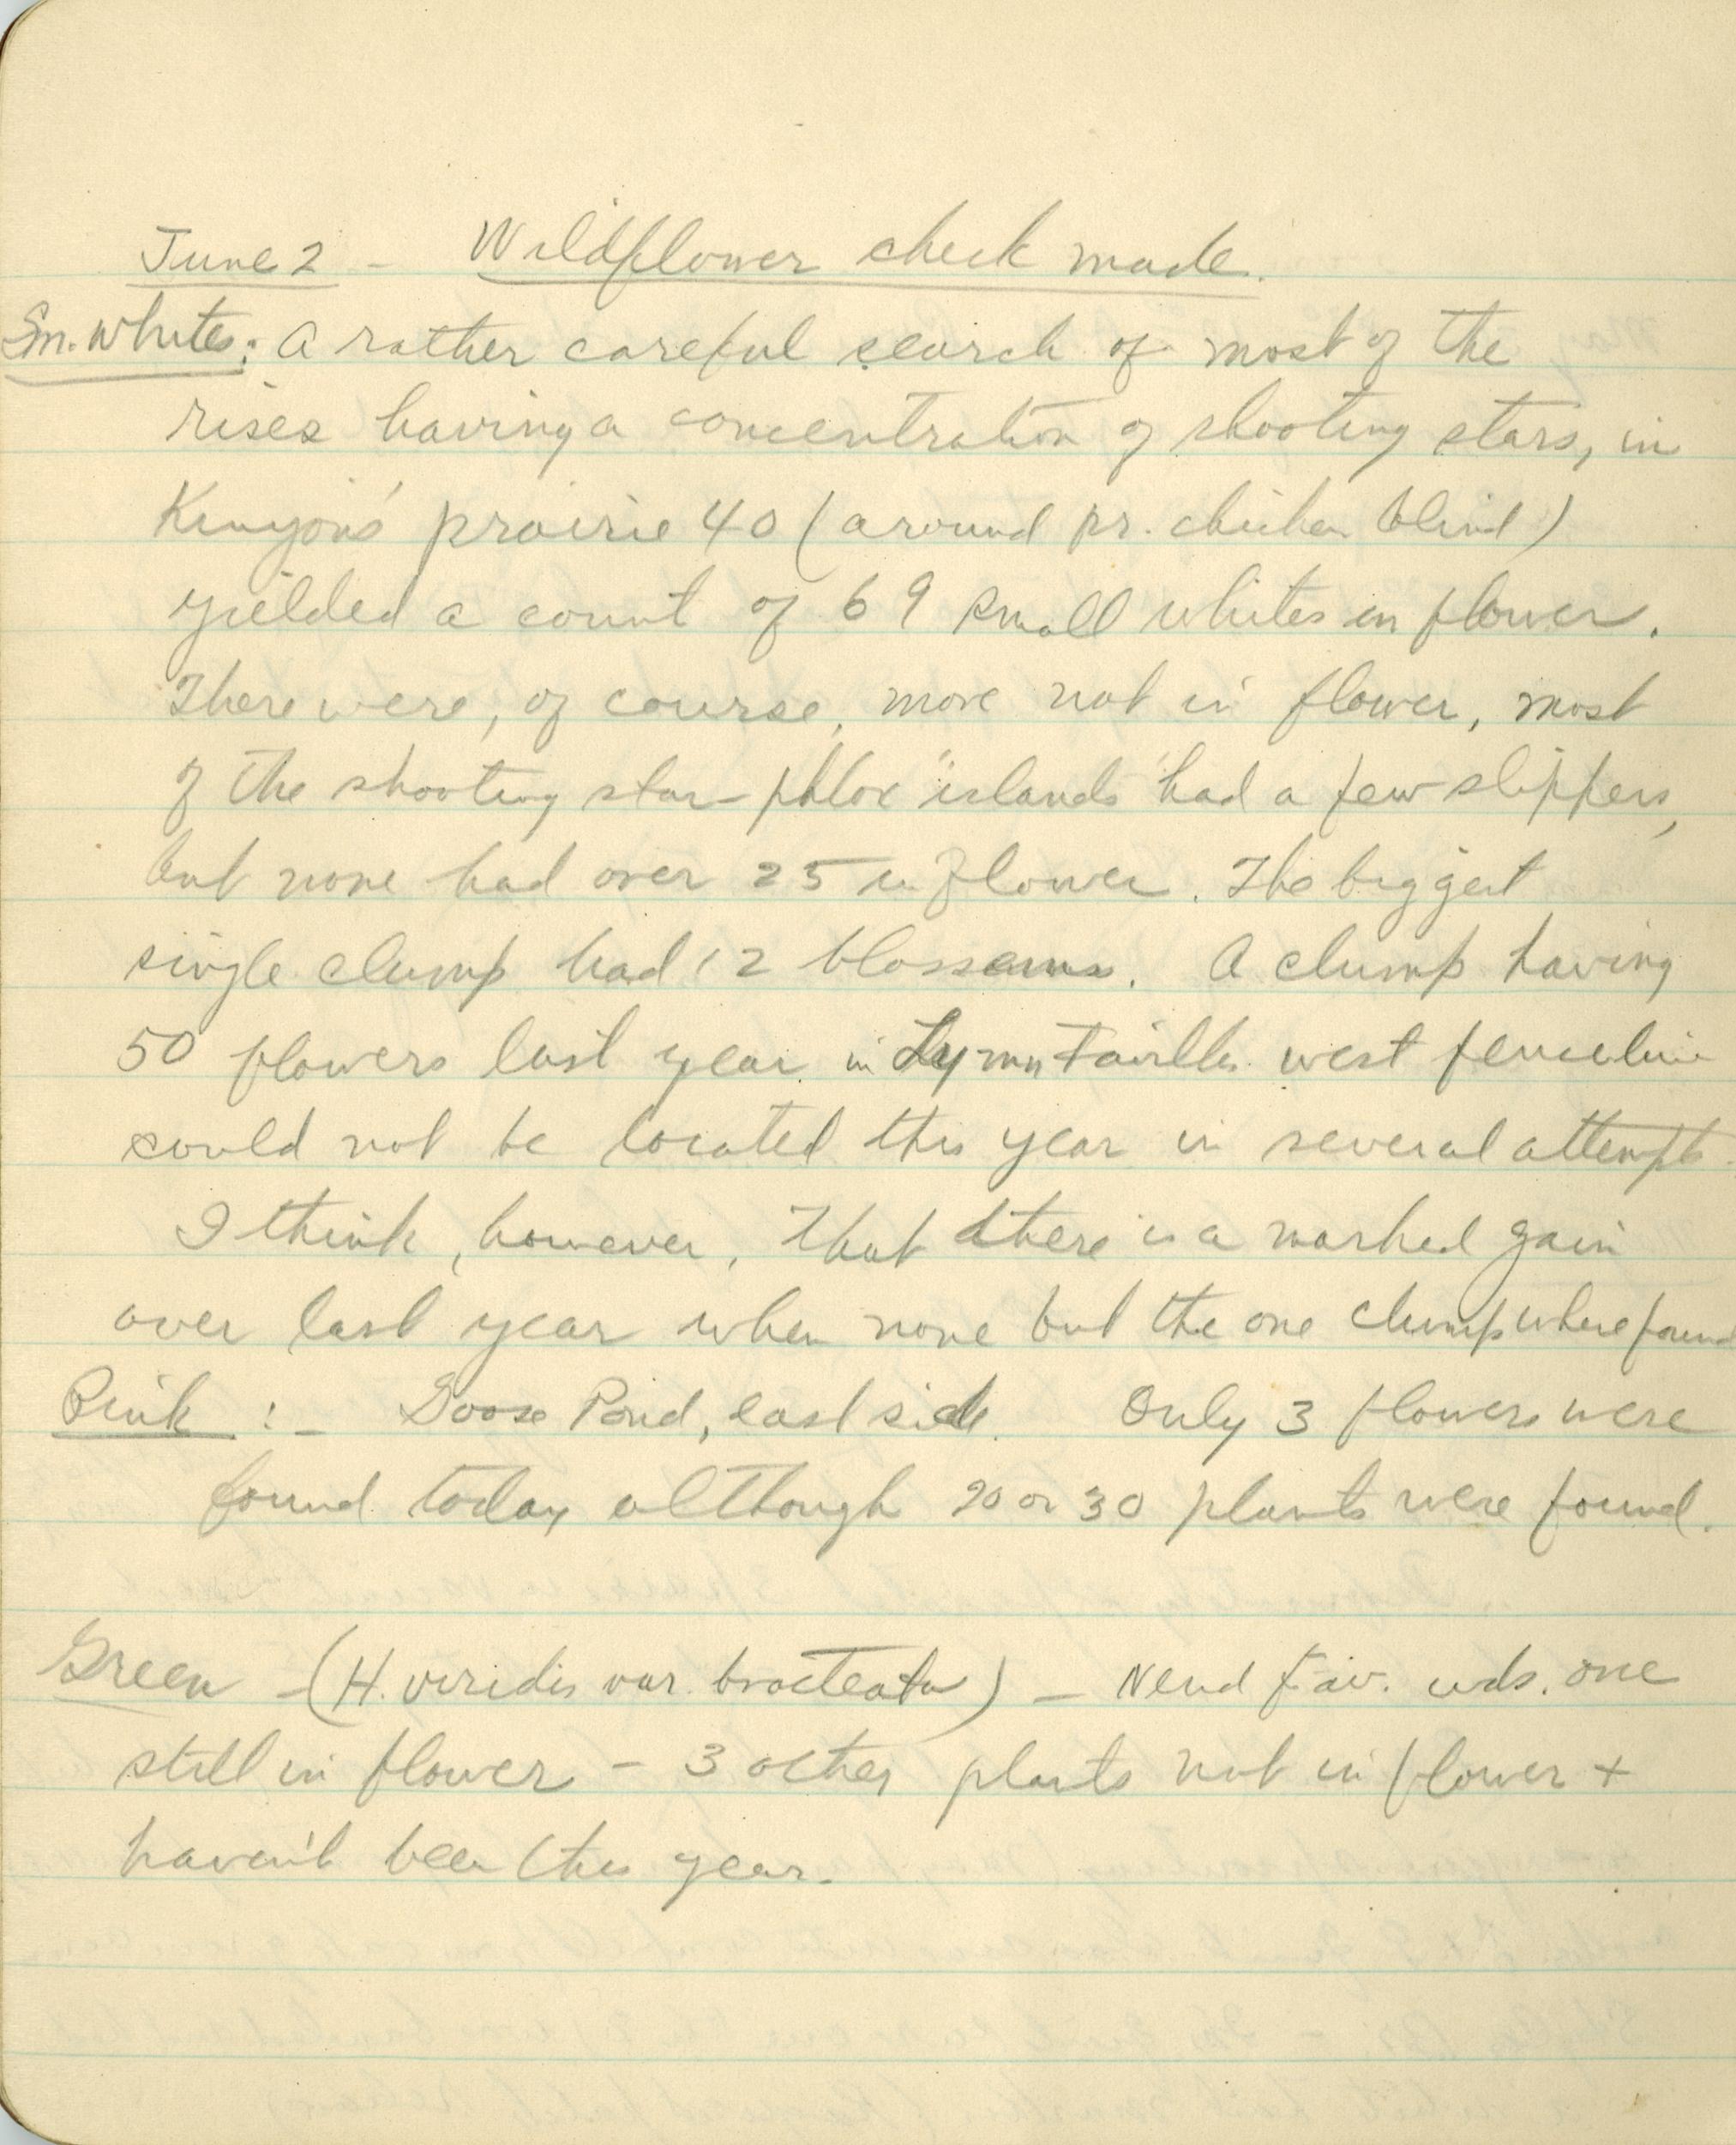 June 2 - Wildflower check made.
Sm. Whites: A rather careful search of most of the
rises having a concentration of shooting stars, in
Kenyon's prairie 40 (around pr. chicken blind)
yielded a count of 69 small whites in flower.
There were, of course, more not in flower, most
of the shooting star - phlox "islands" had a few slippers,
but none had over 25 in flower. The biggest
single clump had 12 blossoms. A clump having
50 flowers last year in Lynn west fenceline
could not be located this year in several attempts.
I think, however, that there is a marked gain
over last year when none but the one clump where found
Pink :- Goose Pond, east side. Only 3 flowers were
found today although 20 or 30 plants were found.
Green - (H. viridis var. bracteata) - N end Fav. wds. one
still in flower - 3 other plants not in flower +
haven't been this year.